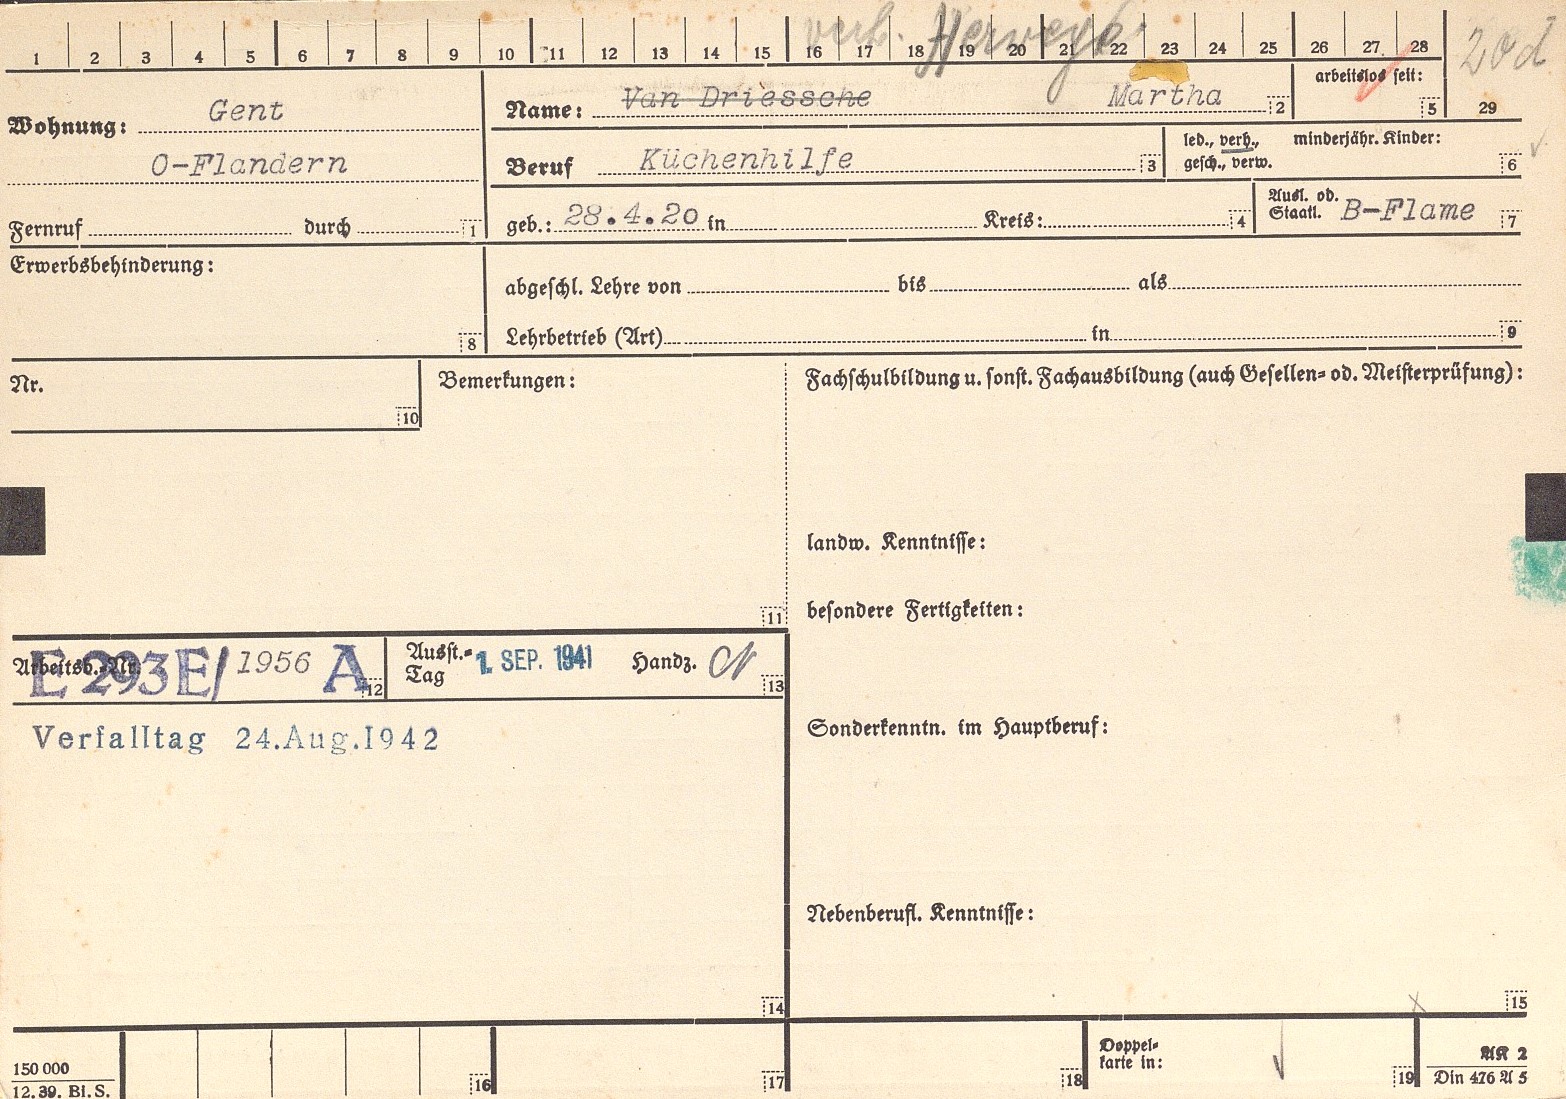 verh. Herweyh 20d
1 2 3 4 5 6 7 8 9 10 11 12 13 14 15 16 17 18 19 20 21 22 23 24 25 26 27 28
Wohnung: Gent
O-Flandern
Fernruf durch 1
Name: Van Driessche Martha 2
arbeitslos seit: 5
29
Beruf Küchenhilfe 3
led., verh., minderjähr. Kinder:
gesch., verw. 6
geb.: 28.4.20 in Kreis: 4
Ausl. od.
Staatl. B-Flame 7
Erwerbsbehinderung:
8
abgeschl. Lehre von bis als
Lehrbetrieb (Art) in 9
Nr.
10
Bemerkungen:
11
Fachschulbildung u. sonst. Fachausbildung (auch Gesellen= od. Meisterprüfung):
landw. Kenntnisse:
besondere Fertigkeiten:
Sonderkenntn. im Hauptberuf:
Nebenberufl. Kenntnisse:
15
Arbeitsb.-Nr. E 293E/ 1956 A 12
Ausst.=
Tag 1. SEP. 1941 Handz. 13
Verfalltag 24.Aug.1942
14
150 000
12. 39. Bl. S.
16 17 18
Doppel=
karte in: 19
AK 2
Din 476 A 5